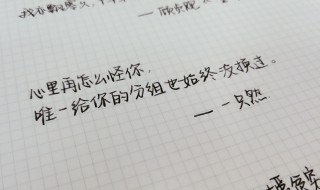 心里再怎么怪你,
唯一给你的分组也始终没换过。
—— 一只然